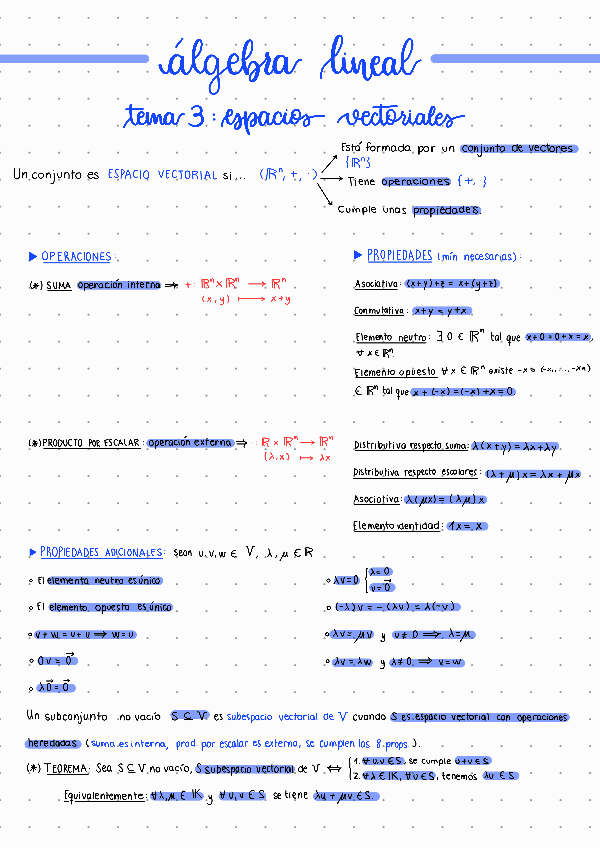 álgebra lineal
tema 3: espacios vectoriales
Está formada por un conjunto de vectores
{ℝⁿ}
Un conjunto es ESPACIO VECTORIAL si... (ℝⁿ, +, ·)
Tiene operaciones {+, ·}
Cumple unas propiedades.
▶ OPERACIONES:
(*) SUMA operación interna ⇒ +: ℝⁿ×ℝⁿ → ℝⁿ
(x,y) ↦ x+y
▶ PROPIEDADES (mín necesarias):
Asociativa: (x+y)+z = x+(y+z)
Conmutativa: x+y = y+x
Elemento neutro: ∃ 0 ∈ ℝⁿ tal que x+0=0+x=x,
∀ x ∈ ℝⁿ.
Elemento opuesto ∀ x ∈ ℝⁿ existe -x = (-x₁,...,-xₙ)
∈ ℝⁿ tal que x+(-x)=(-x)+x=0
(*) PRODUCTO POR ESCALAR: operación externa ⇒ ·: ℝ × ℝⁿ → ℝⁿ
(λ,x) ↦ λx
Distributiva respecto suma: λ(x+y) = λx+λy
Distributiva respecto escalares: (λ+μ)x = λx + μx
Asociativa: λ(μx) = (λμ)x
Elemento identidad: 1x = x
▶ PROPIEDADES ADICIONALES: Sean u,v,w ∈ V, λ,μ ∈ ℝ
◦ El elemento neutro es único
◦ El elemento opuesto es único
◦ v+w = u+v ⇒ w=u
◦ 0v = 0⃗
◦ λ0⃗ = 0⃗
◦ λv=0 { λ=0
v=0⃗
◦ (-λ)v = -(λv) = λ(-v)
◦ λv = μv y v≠0 ⇒ λ=μ
◦ λv = λw y λ≠0 ⇒ v=w
Un subconjunto no vacío S ⊆ V es subespacio vectorial de V cuando S es espacio vectorial con operaciones
heredadas (suma es interna, prod. por escalar es externa, se cumplen las 8 props.).
(*) TEOREMA: Sea S ⊆ V no vacío, S subespacio vectorial de V ⇔ { 1. ∀ u,v ∈ S, se cumple u+v ∈ S
2. ∀ λ ∈ 𝕂, ∀ u ∈ S, tenemos λu ∈ S
Equivalentemente: ∀ λ,μ ∈ 𝕂 y ∀ u,v ∈ S se tiene λu + μv ∈ S.